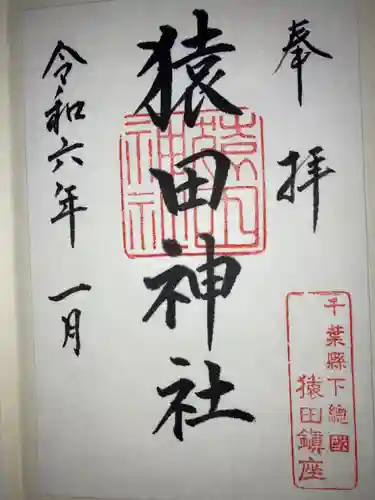 奉拝
猿田神社
令和六年 一月
千葉縣下總國
猿田鎮座
猿田神社